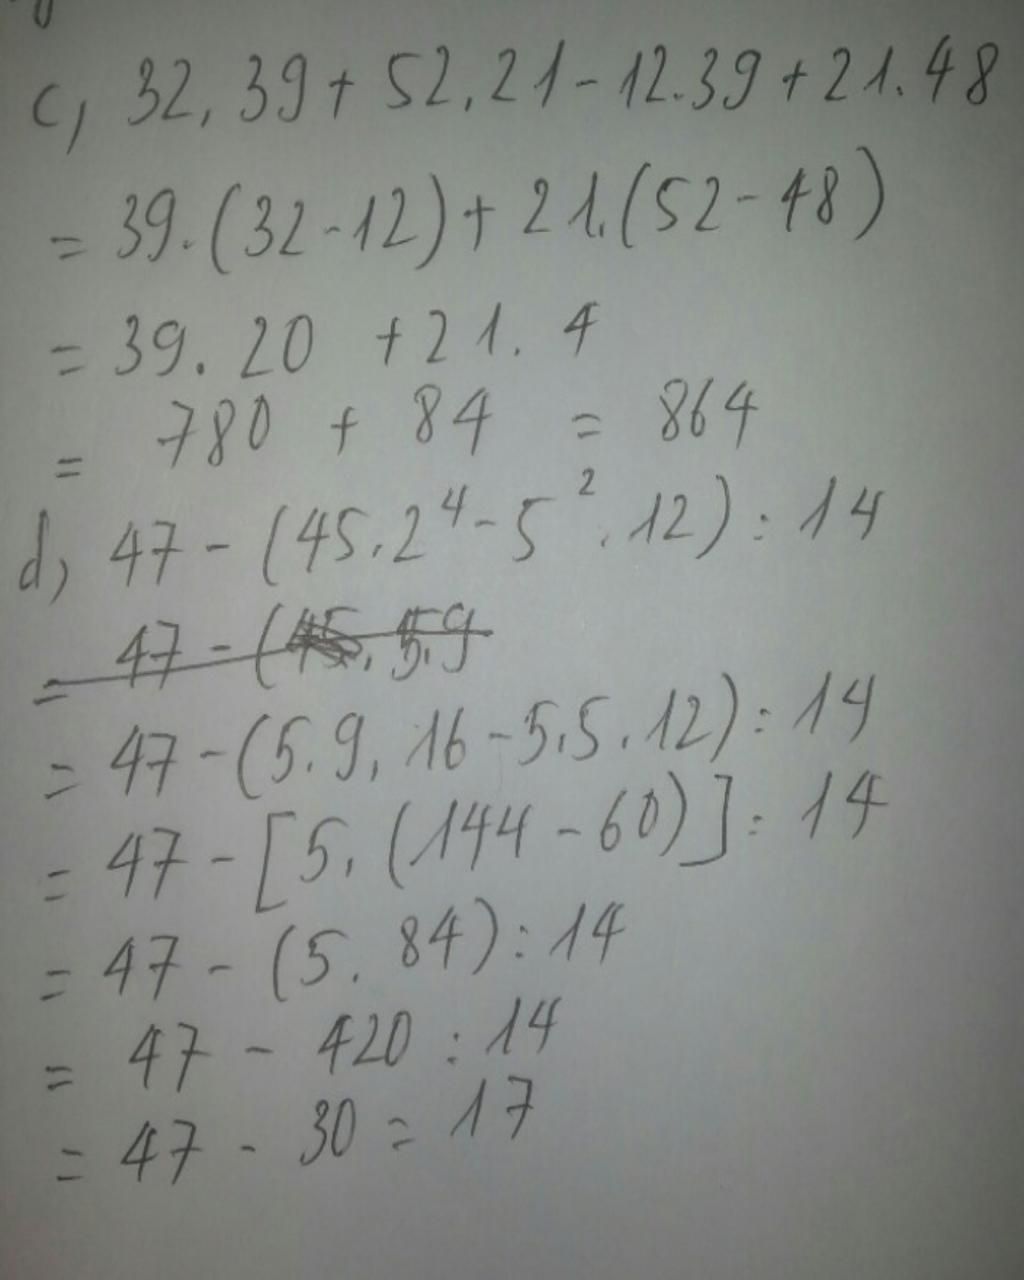 c, 32, 39 + 52, 21 - 12.39 + 21.48
= 39.(32-12) + 21.(52-48)
= 39. 20 + 21. 4
= 780 + 84 = 864
d, 47 - (45.2⁴ - 5². 12) : 14
= 47 - (45. 5.9
= 47 - (5.9, 16 - 5.5.12) : 14
= 47 - [5. (144 - 60)] : 14
= 47 - (5. 84) : 14
= 47 - 420 : 14
= 47 - 30 = 17